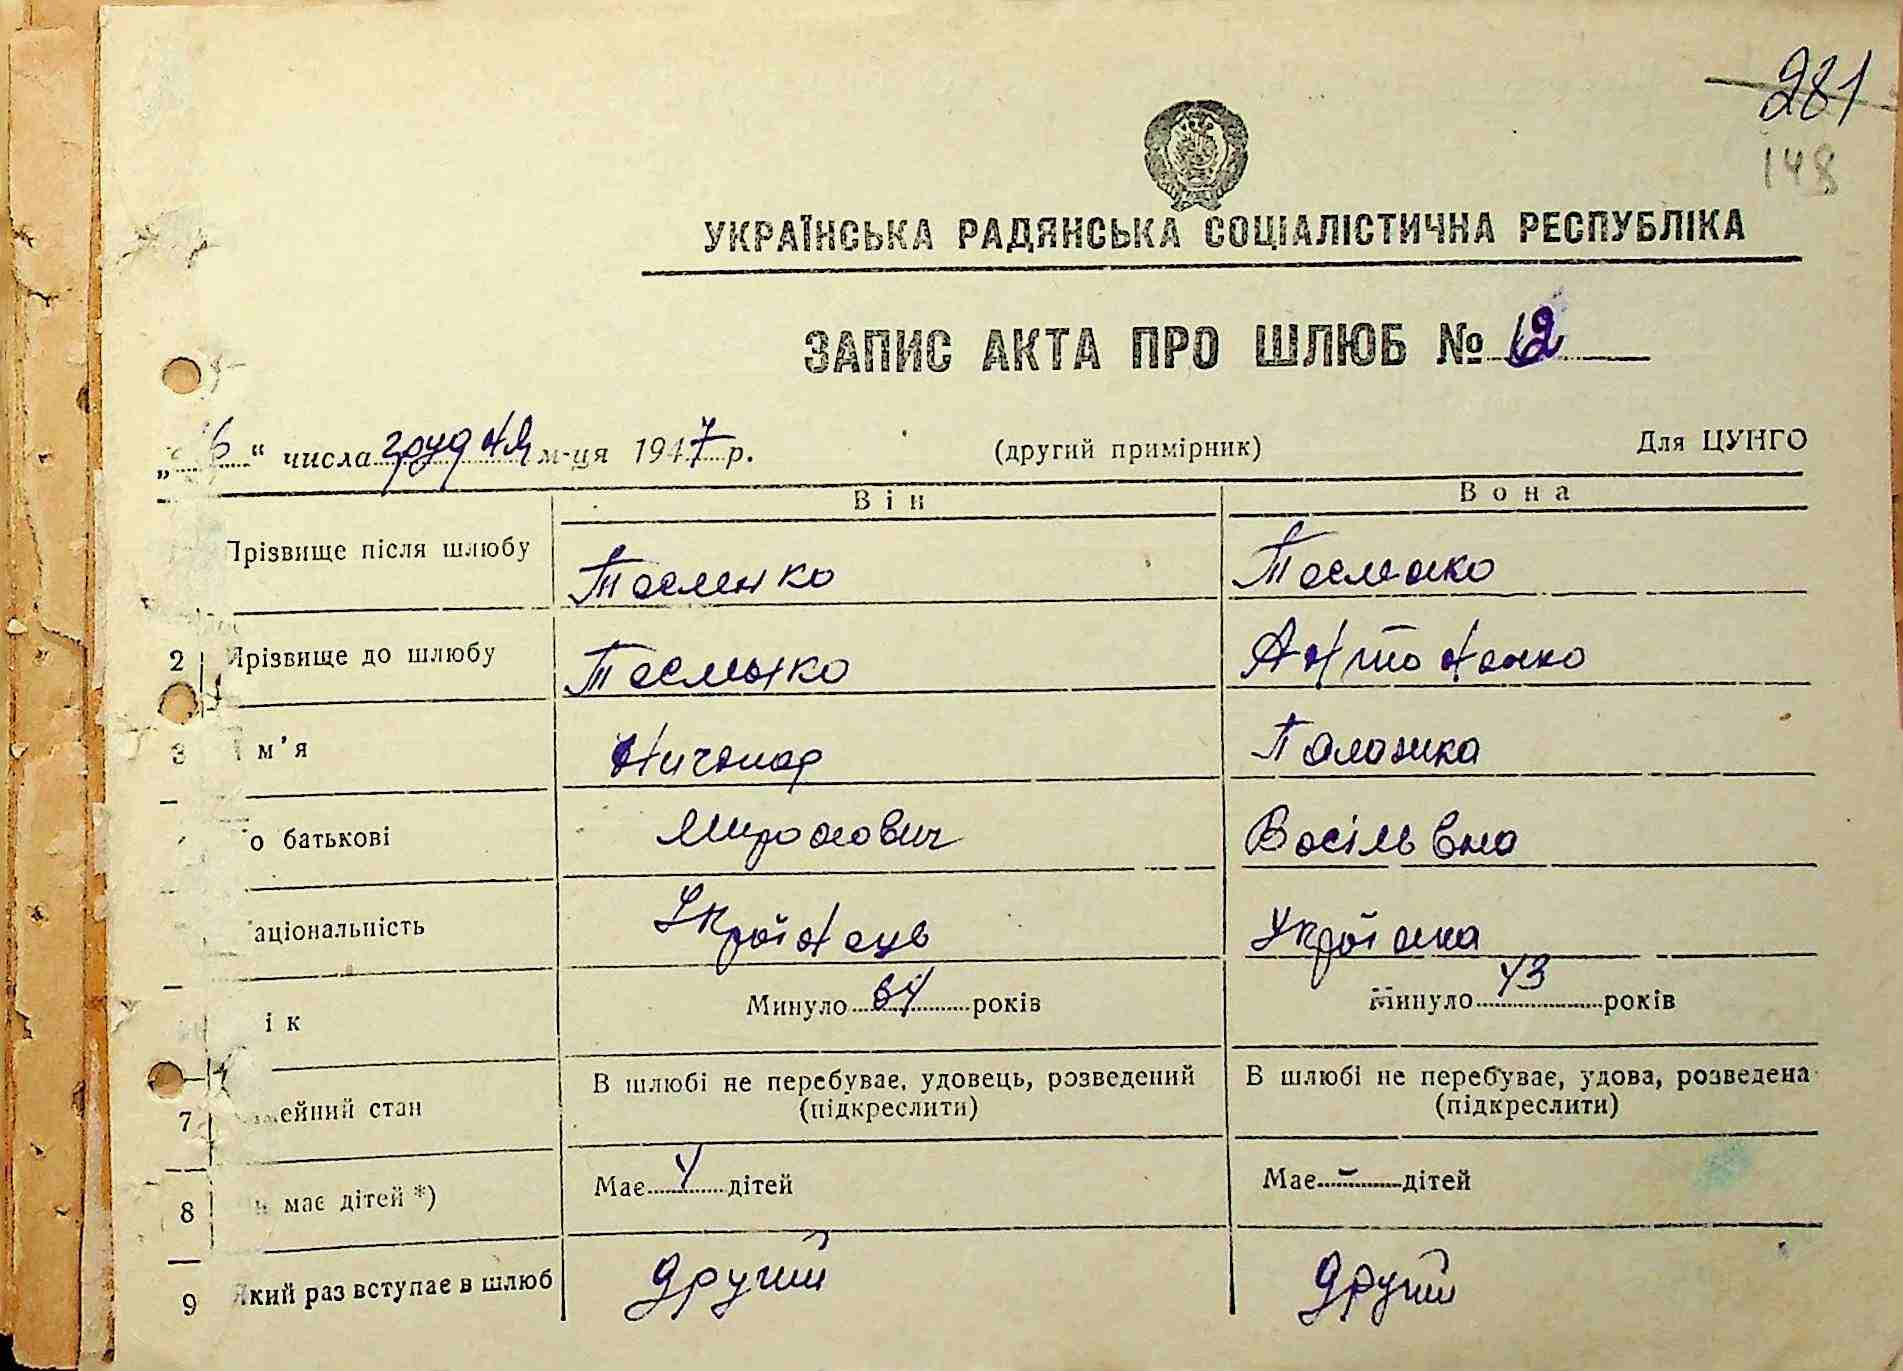 281
148
УКРАЇНСЬКА РАДЯНСЬКА СОЦІАЛІСТИЧНА РЕСПУБЛІКА
ЗАПИС АКТА ПРО ШЛЮБ № 12
„6“ числа грудня м-ця 1947 р. (другий примірник) Для ЦУНГО
Він Вона
Прізвище після шлюбу Тесленко
2 Прізвище до шлюбу Антоненко
3 м'я Ничипор
о батькові Миронович Васільвна
аціональність Українець Українка
ік Минуло 64 років Минуло 43 років
В шлюбі не перебуває, удовець, розведений В шлюбі не перебуває, удова, розведена
7 ейний стан (підкреслити) (підкреслити)
8 має дітей *) Має 4 дітей Має - дітей
9 Який раз вступає в шлюб другий другий